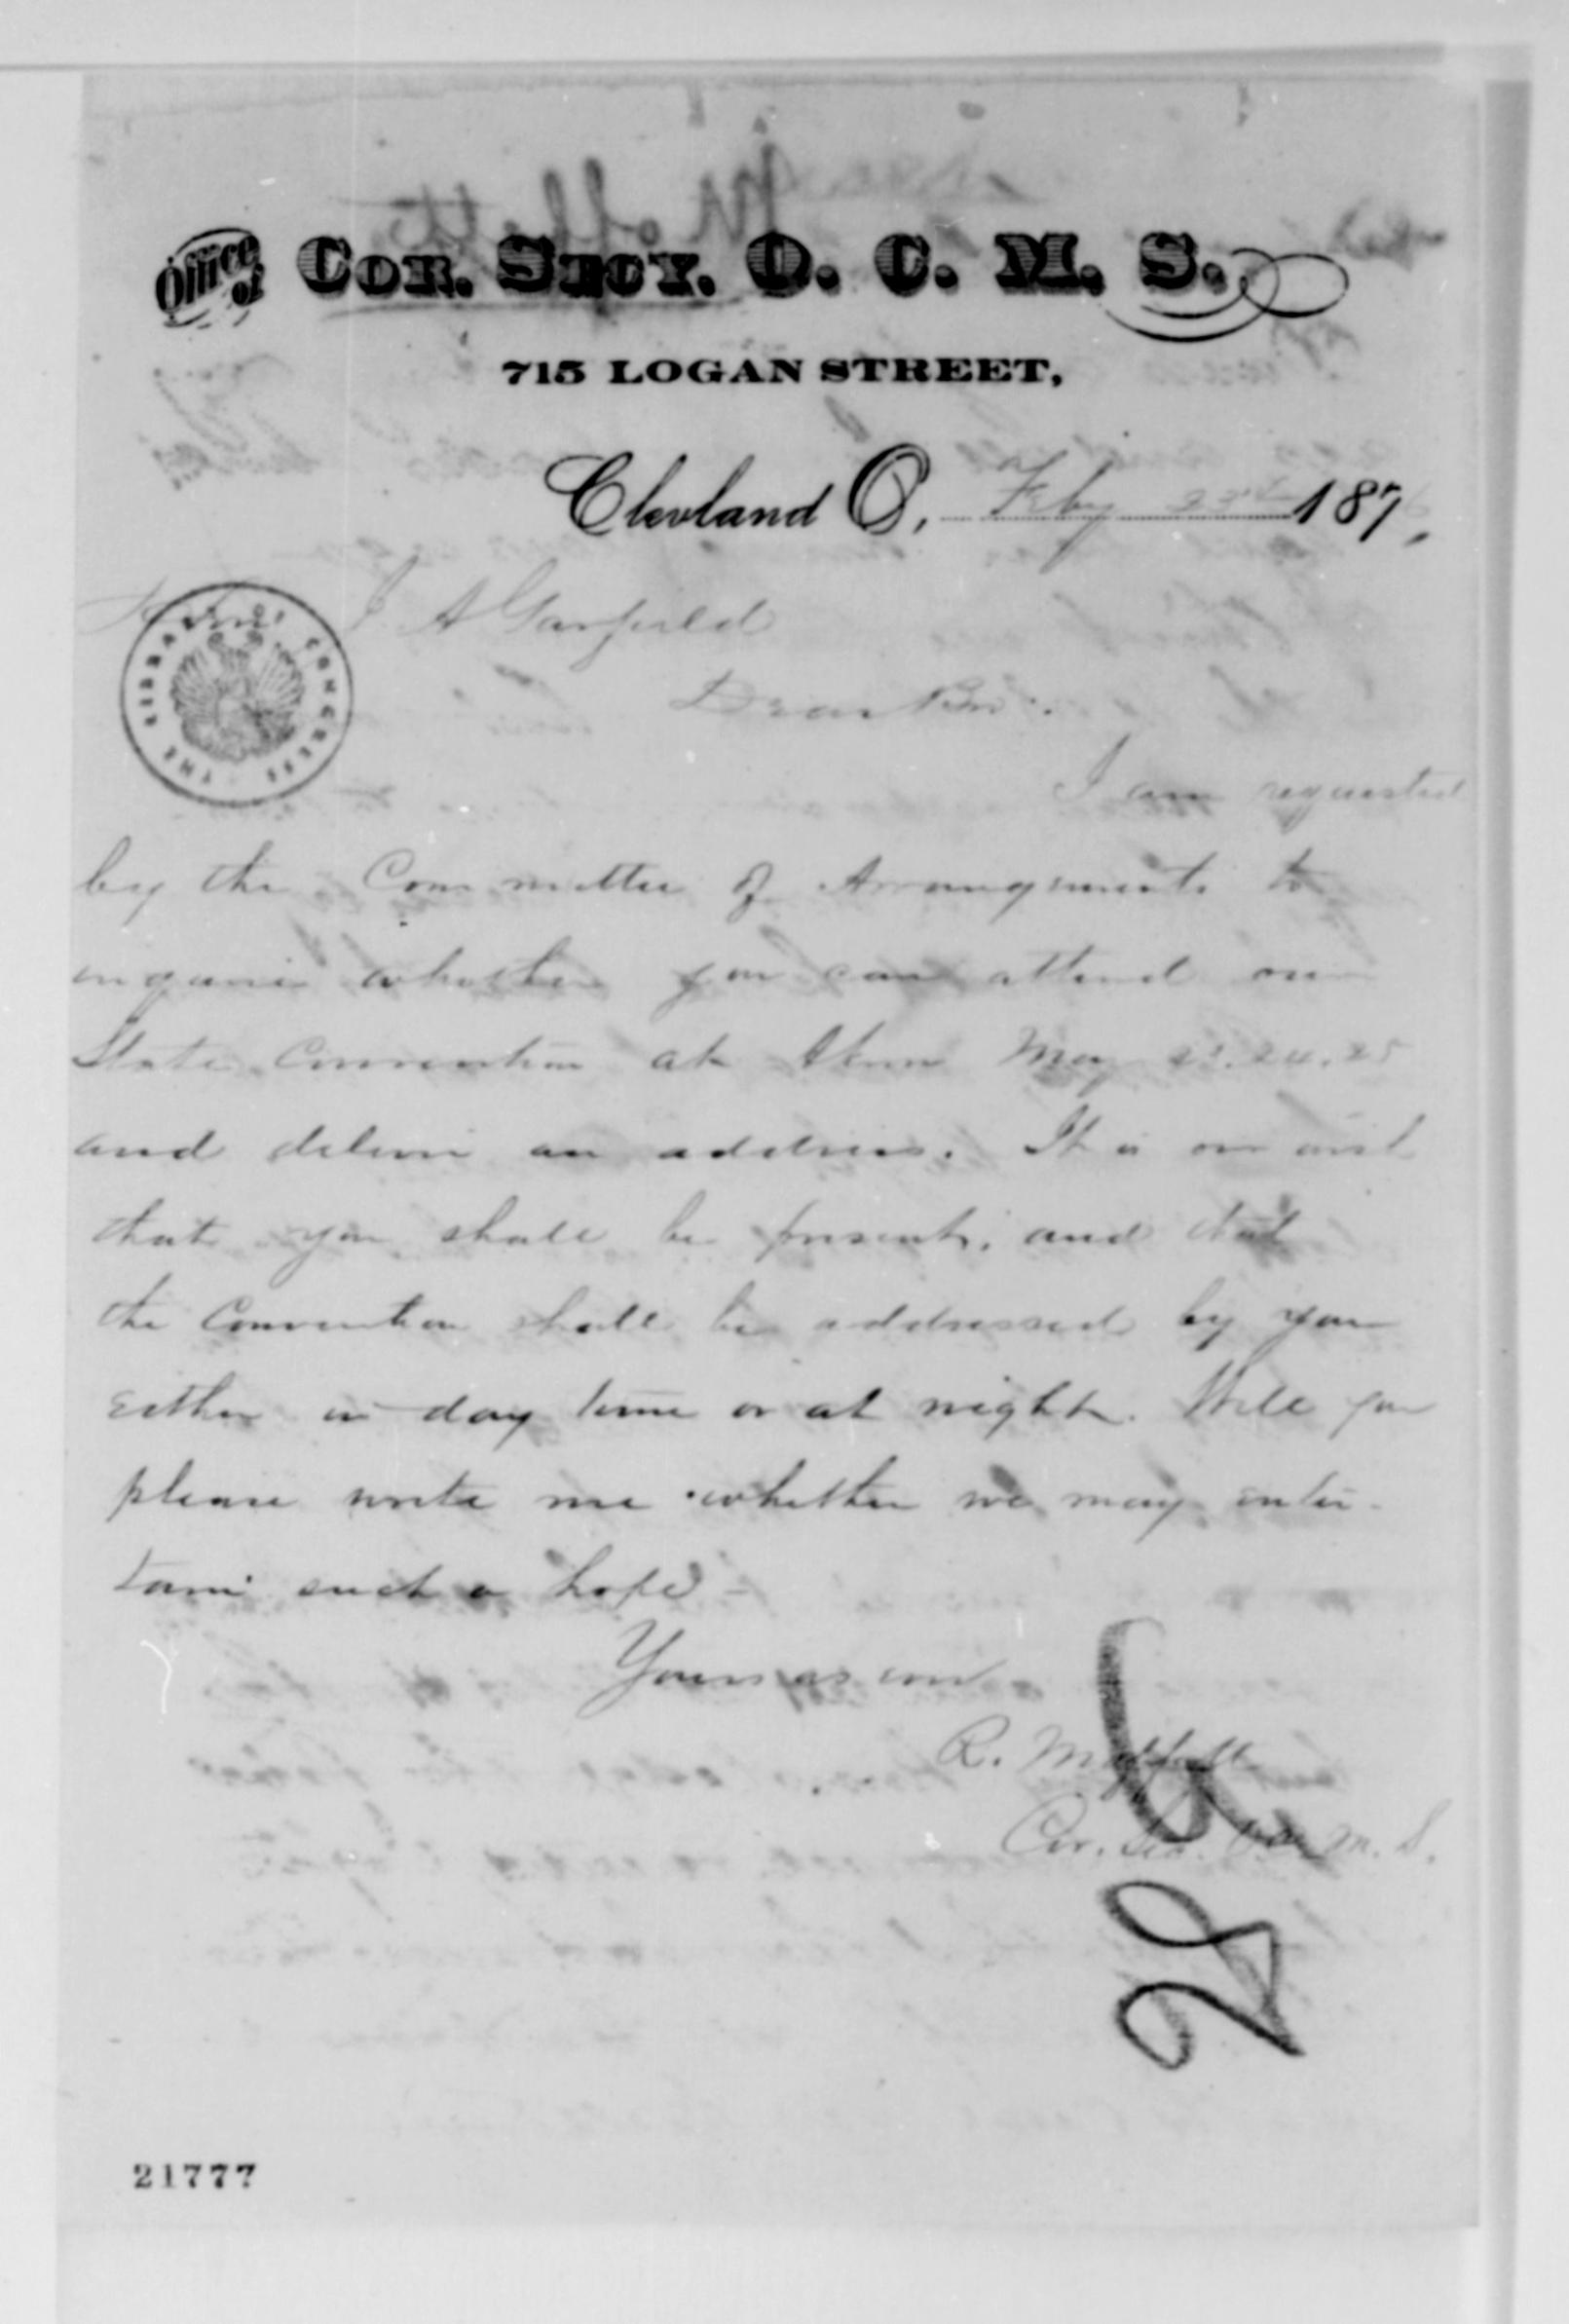 Office of Cor. Secy. O. C. M. S.
715 LOGAN STREET,
Clevland O. Feby 187
J A Garfield
Dear Bro.
I am requested
by the Committee of Arrangements to
inquire whether you can attend our
State Convention at Akron May 23. 24. 25
and deliver an address. It is our wish
that you shall be present, and that
the Convention shall be addressed by you
either in day time or at night. Will you
please write me whether we may enter-
tain such a hope -
Yours as ever
R. Moffett
Cor. Sec. O. C. M. S.
THE LIBRARY OF CONGRESS
21777